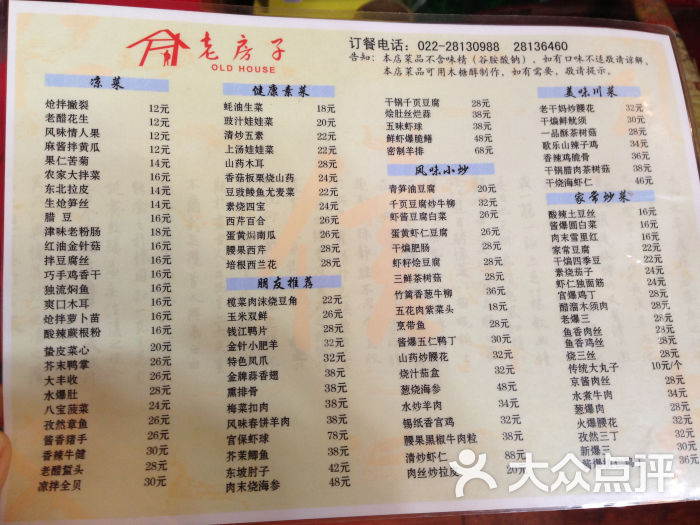 老房子
OLD HOUSE
订餐电话：022-28130988 28136460
告知：本店菜品不含味精（谷胺酸钠）、如有口味不适敬请谅解，
本店菜品可用木糖醇制作，如有需要，敬请提示。
凉菜
炝拌撇裂 12元
老醋花生 12元
风味情人果 12元
麻酱拌黄瓜 12元
果仁苦菊 14元
农家大拌菜 14元
东北拉皮 14元
生炝笋丝 14元
腊豆 16元
津味老粉肠 16元
红油金针菇 16元
拌豆腐丝 16元
巧手鸡香干 16元
独流焖鱼 16元
爽口木耳 16元
炝拌萝卜苗 16元
酸辣蕨根粉 16元
蛰皮菜心 20元
芥末鸭掌 26元
大丰收 26元
水爆肚 28元
八宝菠菜 24元
孜然章鱼 26元
酱香猪手 26元
香辣牛健 30元
老醋蜇头 28元
凉拌全贝 30元
健康素菜
蚝油生菜 18元
豉汁娃娃菜 20元
清炒五素 22元
上汤娃娃菜 22元
山药木耳 28元
香菇板栗烧山药 24元
豆豉鲮鱼尤麦菜 22元
素烧四宝 24元
西芹百合 26元
蛋黄焗南瓜 26元
腰果西芹 28元
培根西兰花 28元
朋友推荐
榄菜肉沫烧豆角 22元
玉米双鲜 28元
钱江鸭片 28元
金针小肥羊 32元
特色凤爪 32元
金牌蒜香翅 38元
熏排骨 38元
梅菜扣肉 38元
风味春饼羊肉 38元
宫保虾球 78元
芥茉鲫鱼 38元
东坡肘子 42元
肉末烧海参 48元
干锅千页豆腐 28元
烩肚丝烂蒜 38元
五味虾球 38元
鲜虾爆脆鳝 48元
密制羊排 68元
风味小炒
青笋油豆腐 20元
千页豆腐炒牛柳 32元
虾酱豆腐白菜 26元
蛋黄虾仁豆腐 26元
干煸肥肠 28元
虾籽烩豆腐 28元
三鲜茶树菇 28元
竹篱香葱牛柳 36元
五花肉紫菜头 18元
烹带鱼 28元
酱爆五仁鸭丁 30元
山药炒腰花 32元
烧汁茄盒 32元
葱烧海参 42元
水炒羊肉 34元
锡纸香宫鸡 32元
腰果黑椒牛肉粒 38元
清炒虾仁 88元
肉丝炒拉皮 20元
美味川菜
老干妈炒腰花 32元
干煸鲜鱿须 30元
一品酥茶树菇 28元
歌乐山辣子鸡 34元
香辣鸡脆骨 36元
干锅腊肉茶树菇 38元
干烧海虾仁 46元
家常炒菜
酸辣土豆丝 16元
酱爆圆白菜 16元
肉末雪里红 16元
家常豆腐 22元
干煸四季豆 22元
素烧茄子 24元
虾仁独面筋 24元
宫爆鸡丁 28元
醋溜木须肉 28元
老爆三 28元
鱼香肉丝 28元
鱼香鸡丝 28元
烧三丝 28元
传统大丸子 10元/个
京酱肉丝 28元
水煮牛肉 34元
葱爆肉 28元
火爆腰花 32元
孜然三丁
新爆三 30元
36元
大众点评